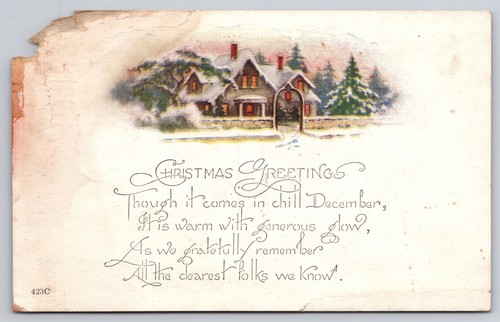 Christmas Greetings
Though it comes in chill December,
It is warm with generous glow,
As we gratefully remember
All the dearest folks we know.
423C